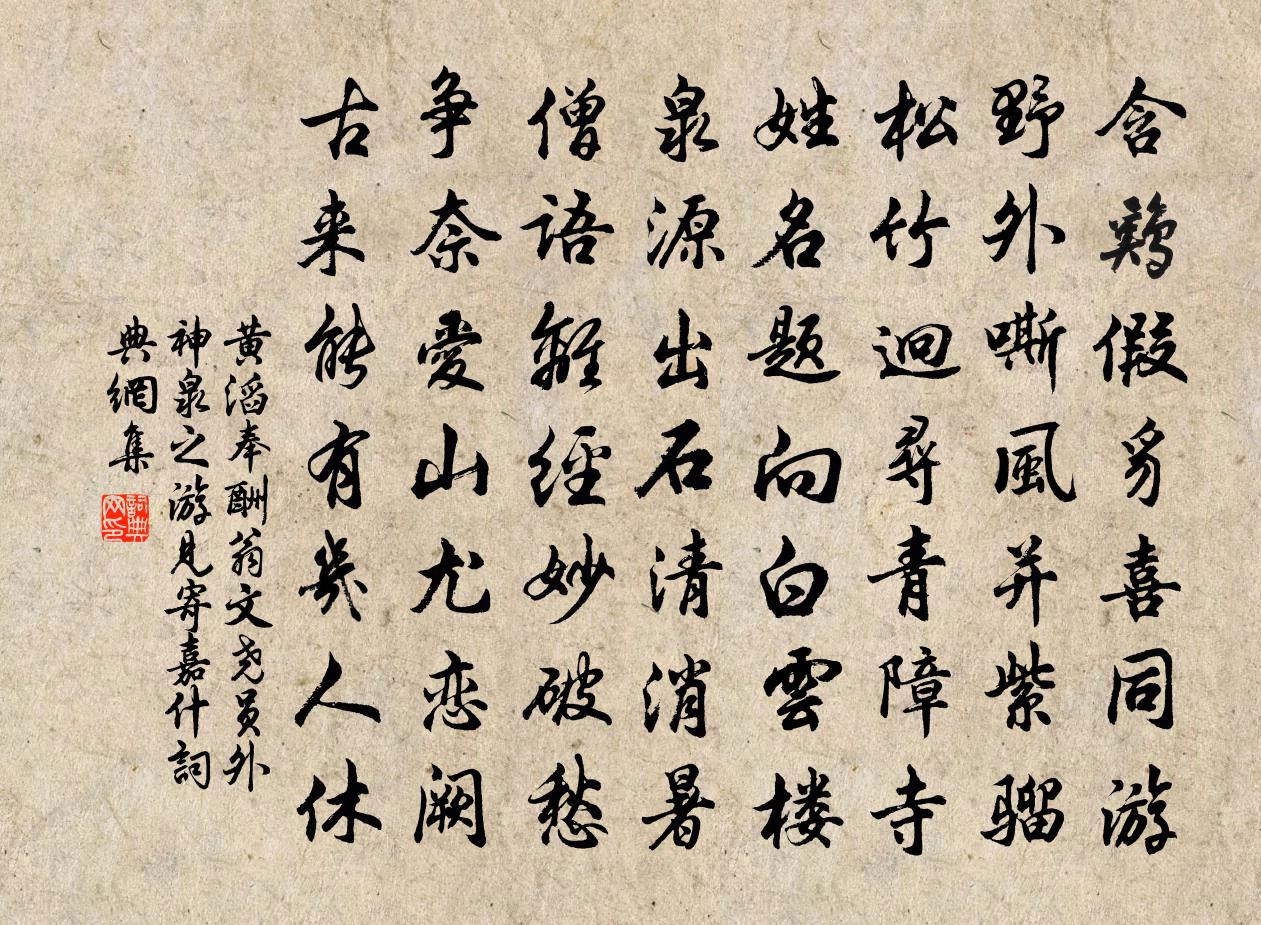 含鷄假豸喜同游
野外嘶風并紫骝
松竹迥尋青障寺
姓名题向白雲楼
泉源出石清消暑
僧語離經妙破愁
争奈愛山尤恋阙
古来能有幾人休
黄滔奉酬翁文尧员外
神泉之游見寄嘉什詞
典網集
詞典网印